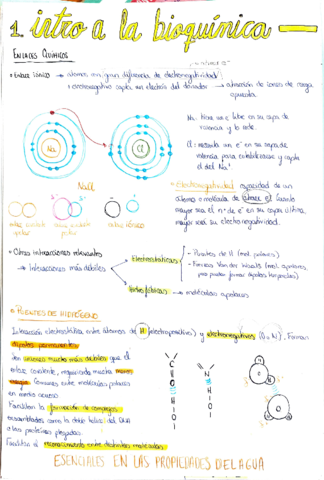 1. intro a la bioquímica
ENLACES QUÍMICOS
• Enlace iónico → átomos con gran diferencia de electronegatividad
• electronegativo capta un electrón del donador → atracción de iones de carga opuesta.
Na: tiene un e- libre en su capa de valencia y lo cede.
Cl: necesita un e- en su capa de valencia para estabilizarse y capta el del Na+
Na
Cl
NaCl
• Electronegatividad capacidad de un átomo o molécula de atraer e-. Cuanto mayor sea el nº de e- en su capa última, mayor será su electronegatividad.
• Otras interacciones relevantes
→ Interacciones más débiles
Electrostáticas
- Puentes de H (mol. polares)
- Fuerzas Van der Waals (mol. apolares,
Hidrofóbicas → moléculas apolares
• PUENTES DE HIDRÓGENO
Interacción electrostática entre átomos de H (electropositivos) y electronegativos (O o N). Forman
dipolos permanentes.
Son uniones mucho más débiles que el
enlace covalente, requiriendo mucha menos
energía. Comunes entre moléculas polares
en medio acuoso.
Facilitan la formación de complejos
ensamblados como la doble hélice del DNA
o las proteínas plegadas.
Facilitan el reconocimiento entre distintas moléculas.
C
O
H
O
N
H
O
H
O
H
O
ESENCIALES EN LAS PROPIEDADES DEL AGUA